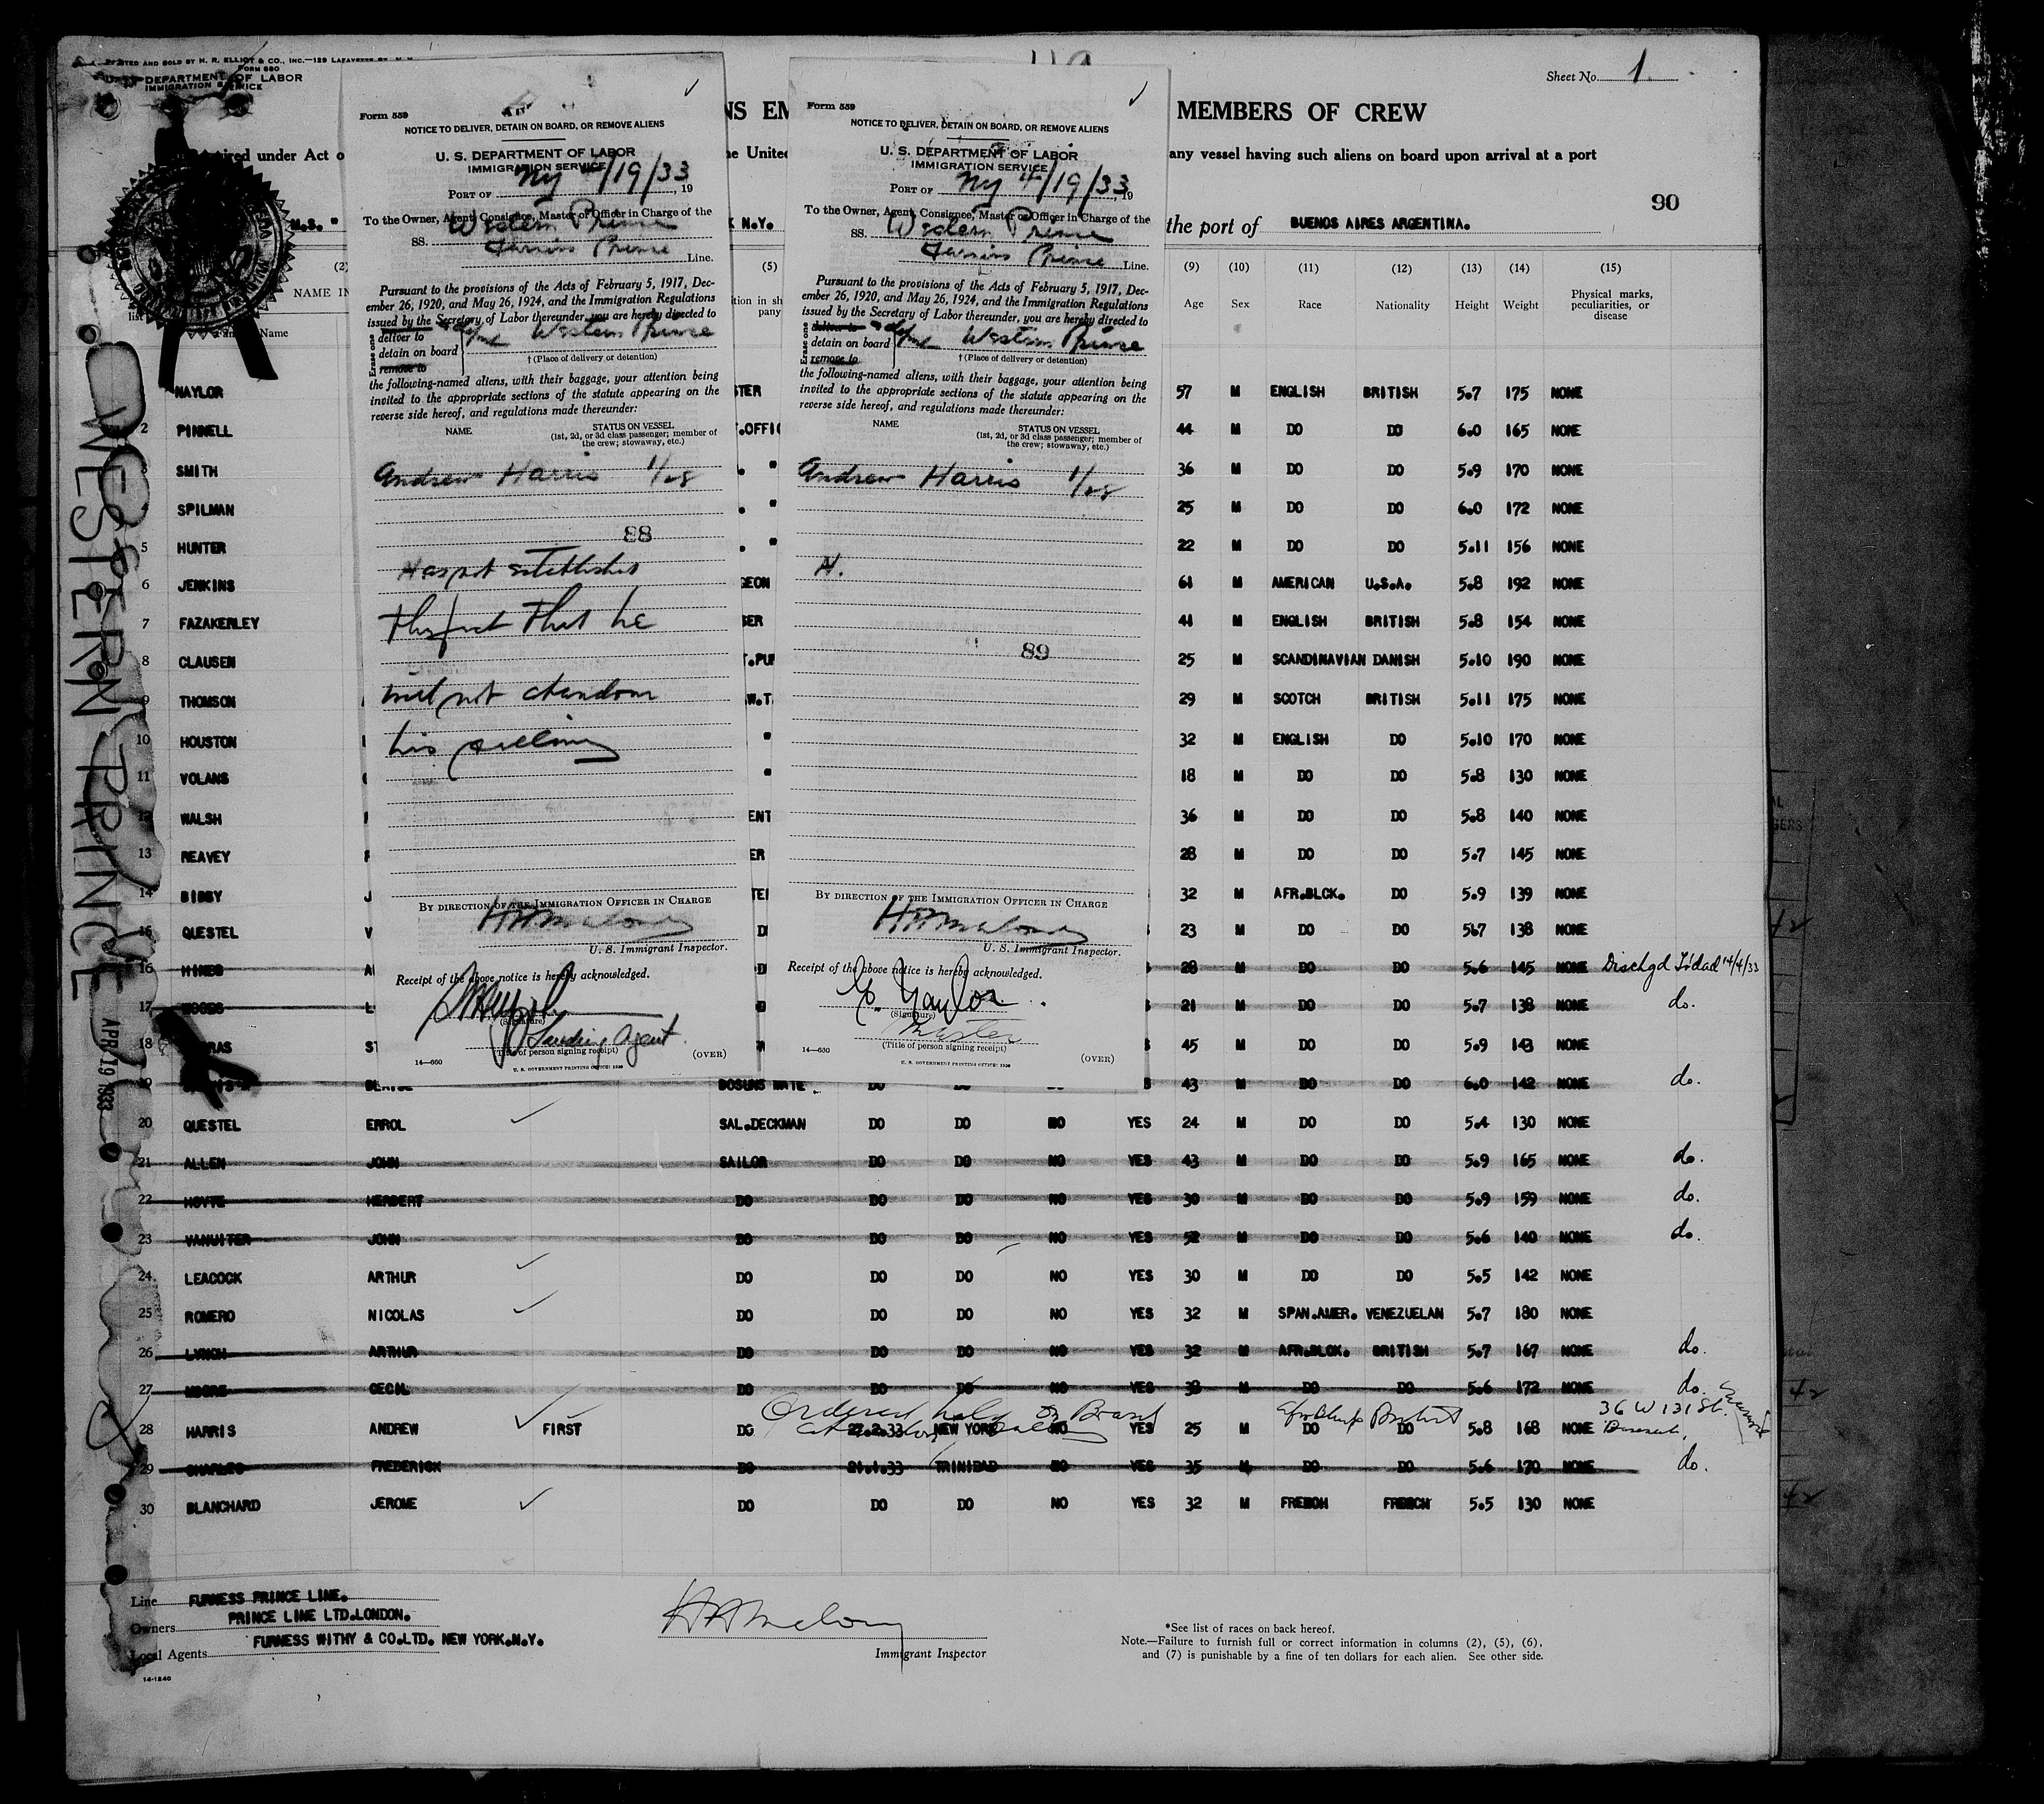 PRINTED AND SOLD BY H. R. ELLIOT & CO., INC.—129 LAFAYETTE ST., N. Y.
FORM 680
U. S. DEPARTMENT OF LABOR
IMMIGRATION SERVICE
Sheet No. 1
NS EM MEMBERS OF CREW
quired under Act o he United any vessel having such aliens on board upon arrival at a port
90
M.S. " K N.Y. the port of BUENOS AIRES ARGENTINA.
(2) (5) (9) (10) (11) (12) (13) (14) (15)
NAME IN Age Sex Race Nationality Height Weight Physical marks, peculiarities, or disease
WESTERN PRINCE
APR 19 1933
Form 559
NOTICE TO DELIVER, DETAIN ON BOARD, OR REMOVE ALIENS
U. S. DEPARTMENT OF LABOR
IMMIGRATION SERVICE
PORT OF NY 4/19/33, 19
To the Owner, Agent, Consignee, Master or Officer in Charge of the
SS. Western Prince
Furness Prince Line.
Pursuant to the provisions of the Acts of February 5, 1917, Dec-
ember 26, 1920, and May 26, 1924, and the Immigration Regulations
issued by the Secretary of Labor thereunder, you are hereby directed to
Erase one
deliver to
detain on board Western Prince
remove to
† (Place of delivery or detention)
the following-named aliens, with their baggage, your attention being
invited to the appropriate sections of the statute appearing on the
reverse side hereof, and regulations made thereunder:
NAME STATUS ON VESSEL
(1st, 2d, or 3d class passenger; member of
the crew; stowaway, etc.)
Andrew Harris 1/28
88
Has not established
the fact that he
will not abandon
his calling
BY DIRECTION OF THE IMMIGRATION OFFICER IN CHARGE
U. S. Immigrant Inspector.
Receipt of the above notice is hereby acknowledged.
(Signature)
Landing Agent
(Title of person signing receipt)
14—660 (OVER)
U. S. GOVERNMENT PRINTING OFFICE: 1930
Form 559
NOTICE TO DELIVER, DETAIN ON BOARD, OR REMOVE ALIENS
U. S. DEPARTMENT OF LABOR
IMMIGRATION SERVICE
PORT OF NY 4/19/33, 19
To the Owner, Agent, Consignee, Master or Officer in Charge of the
SS. Western Prince
Furness Prince Line.
Pursuant to the provisions of the Acts of February 5, 1917, Dec-
ember 26, 1920, and May 26, 1924, and the Immigration Regulations
issued by the Secretary of Labor thereunder, you are hereby directed to
Erase one
deliver to
detain on board Western Prince
remove to
† (Place of delivery or detention)
the following-named aliens, with their baggage, your attention being
invited to the appropriate sections of the statute appearing on the
reverse side hereof, and regulations made thereunder:
NAME STATUS ON VESSEL
(1st, 2d, or 3d class passenger; member of
the crew; stowaway, etc.)
Andrew Harris 1/28
H.
89
BY DIRECTION OF THE IMMIGRATION OFFICER IN CHARGE
U. S. Immigrant Inspector.
Receipt of the above notice is hereby acknowledged.
Naylor
(Signature)
Master
(Title of person signing receipt)
14—660 (OVER)
U. S. GOVERNMENT PRINTING OFFICE: 1930
NAYLOR STER 57 M ENGLISH BRITISH 5.7 175 NONE
2 PINNELL T.OFFI 44 M DO DO 6.0 165 NONE
3 SMITH . " 36 M DO DO 5.9 170 NONE
4 SPILMAN . " 25 M DO DO 6.0 172 NONE
5 HUNTER . " 22 M DO DO 5.11 156 NONE
6 JENKINS GEON 61 M AMERICAN U.S.A. 5.8 192 NONE
7 FAZAKERLEY SER 41 M ENGLISH BRITISH 5.8 154 NONE
8 CLAUSEN T.PUR 25 M SCANDINAVIAN DANISH 5.10 190 NONE
9 THOMSON W.T. 29 M SCOTCH BRITISH 5.11 175 NONE
10 HOUSTON " 32 M ENGLISH DO 5.10 170 NONE
11 VOLANS " 18 M DO DO 5.8 130 NONE
12 WALSH ENT 36 M DO DO 5.8 140 NONE
13 REAVEY ER 28 M DO DO 5.7 145 NONE
14 BIBBY J TE 32 M AFR.BLCK. DO 5.9 139 NONE
15 QUESTEL V D 23 M DO DO 5.7 138 NONE
16 HINDS A D 28 M DO DO 5.6 145 NONE Dischgd T'dad 14/4/33
17 L 21 M DO DO 5.7 138 NONE do.
18 RAS ST 45 M DO DO 5.9 143 NONE
19 BOSUNS MATE DO DO 43 M DO DO 6.0 142 NONE do.
20 QUESTEL ERROL SAL.DECKMAN DO DO NO YES 24 M DO DO 5.4 130 NONE
21 ALLEN JOHN SAILOR DO DO NO YES 43 M DO DO 5.9 165 NONE do.
22 HOYTE HERBERT DO DO DO NO YES 30 M DO DO 5.9 159 NONE do.
23 VANUITER JOHN DO DO DO NO YES 52 M DO DO 5.6 140 NONE do.
24 LEACOCK ARTHUR DO DO DO NO YES 30 M DO DO 5.5 142 NONE
25 ROMERO NICOLAS DO DO DO NO YES 32 M SPAN.AMER. VENEZUELAN 5.7 180 NONE
26 LYNCH ARTHUR DO DO DO NO YES 32 M AFR.BLCK. BRITISH 5.7 167 NONE do.
27 MOORE CECIL DO DO DO NO YES 38 M DO DO 5.6 172 NONE do.
Ordered held on Board 36 W 131 St.
28 HARRIS ANDREW FIRST DO 22.2.33 NEW YORK NO YES 25 M DO DO 5.8 168 NONE
29 CHARLES FREDERICK DO 21.1.33 TRINIDAD NO YES 35 M DO DO 5.6 170 NONE do.
30 BLANCHARD JEROME DO DO DO NO YES 32 M FRENCH FRENCH 5.5 130 NONE
Line FURNESS PRINCE LINE.
Owners PRINCE LINE LTD.LONDON.
Local Agents FURNESS WITHY & CO.LTD. NEW YORK.N.Y.
14-1240
Immigrant Inspector
*See list of races on back hereof.
Note.—Failure to furnish full or correct information in columns (2), (5), (6),
and (7) is punishable by a fine of ten dollars for each alien. See other side.